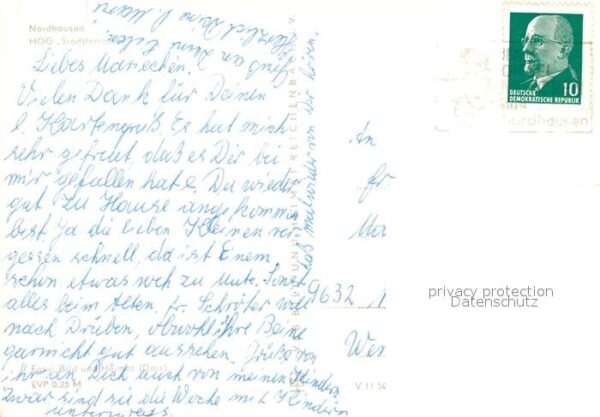 Nordhausen
HOG „Stadtterrasse"
Liebes Mariechen!
Vielen Dank für Deinen
l. Kartengruß. Es hat mich
sehr gefreut, daß es Dir bei
mir gefallen hat u. Du wieder
gut zu Hause angekommen
bist. Ja die lieben Kleinen ver-
gessen schnell, da ist Einem
schon etwas weh zu Mute. Sonst
alles beim Alten. fr. Schröter will
nach Drüben, obwohl ihre Beine
garnicht gut aussehen. Grüße von
ihr an Dich auch von meinen Kindern
Zwar sind sie die Woche mit Kindern
unterwegs.
Laß mal wieder von Dir hören.
Gruß an Deine
Herzlichst Deine l.
An
fr.
Ma
9632
Wer
Foto: Bild und Heimat
EVP 0,25 M
V 11 50
REICHENBACH I. V.
10
DEUTSCHE
DEMOKRATISCHE REPUBLIK
nordhausen
privacy protection
Datenschutz